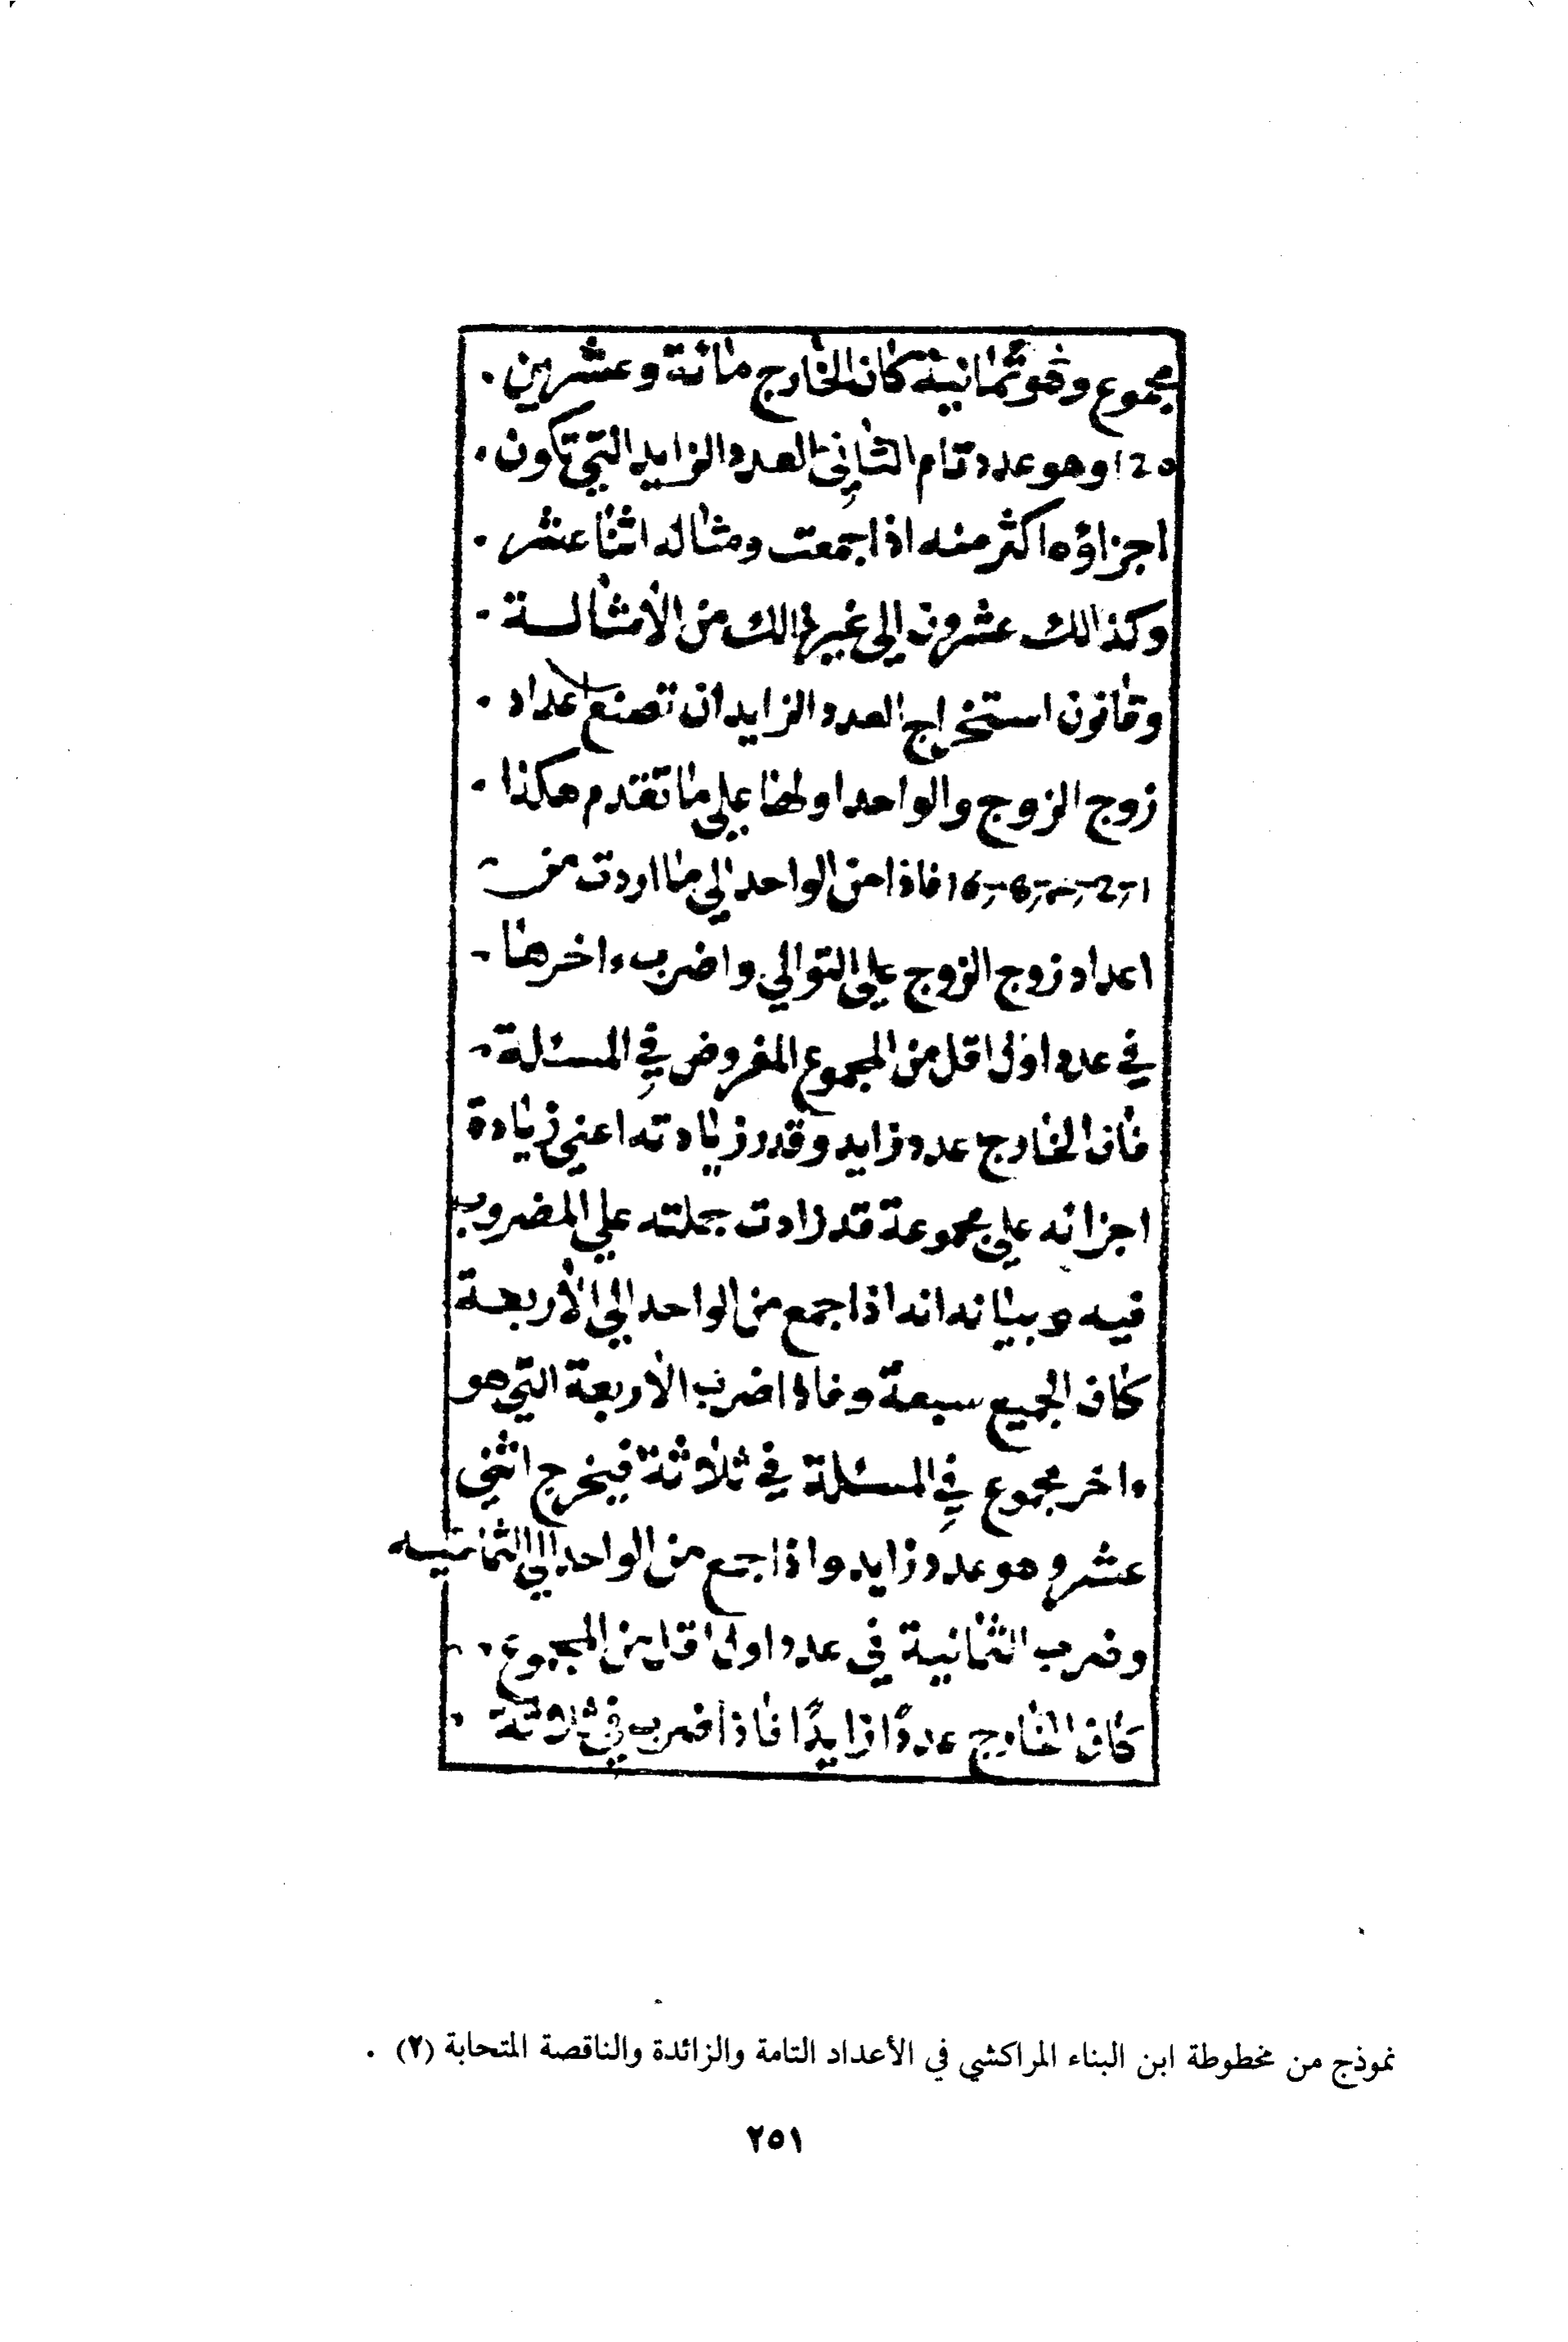 مجموع وهو ثمانية كان الخارج مائة وعشرين .
120 وهو عدد تام الثاني العدد الزايد التي تكون .
اجزاؤه اكثر منه اذا جمعت ومثاله اثنا عشر .
وكذالك عشرون الى غير ذالك من الأمثالة .
وقانون استخراج العدد الزايد ان تصنع اعداد .
زوج الزوج والواحد اولها على ما تقدم هكذا .
فاذا من الواحد الي ما اردت من
اعداد زوج الزوج على التوالي واضرب ءاخرها
في عدد اول اقل من المجموع المفروض في المسئلة
فان الخارج عدد زايد وقدر زيادته اعني زيادة
اجزائه على مجموعة قد زادت جملته علي المضروب
فيه وبيانه انه اذا جمع من الواحد الي الأربعة
كان الجميع سبعة وفاذا ضرب الأربعة التي هو
ءاخر مجموع في المسئلة في ثلاثة فيخرج اثني
عشر وهو عدد زايد واذا جمع من الواحد الي الثمانية
وضرب الثمانية في عدد اول اقل من المجموع .
كان الخارج عددًا زايدًا فاذا ضرب في ثلاثة
نموذج من مخطوطة ابن البناء المراكشي في الأعداد التامة والزائدة والناقصة المتحابة (٢) .
٢٥١